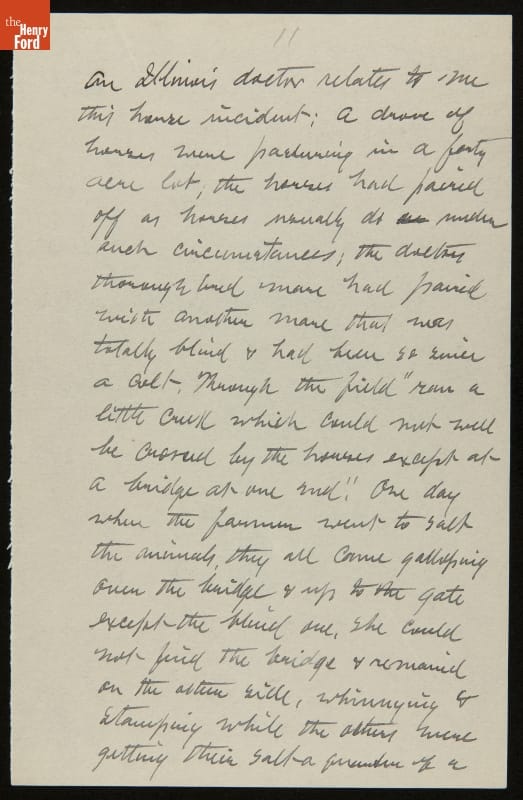 the
Henry
Ford
11
An Illinois doctor relates to me
this horse incident; a drove of
horses were pasturing in a forty
acre lot; the horses had paired
off as horses usually do under
such circumstances; the doctors
thoroughbred mare had paired
with another mare that was
totally blind & had been so since
a colt. Through the field "ran a
little creek which could not well
be crossed by the horses except at
a bridge at one end". One day
when the farmer went to salt
the animals, they all came galloping
over the bridge & up to the gate
except the blind one, she could
not find the bridge & remained
on the other side, whinnying &
stamping while the others were
getting their salt a quarter of a